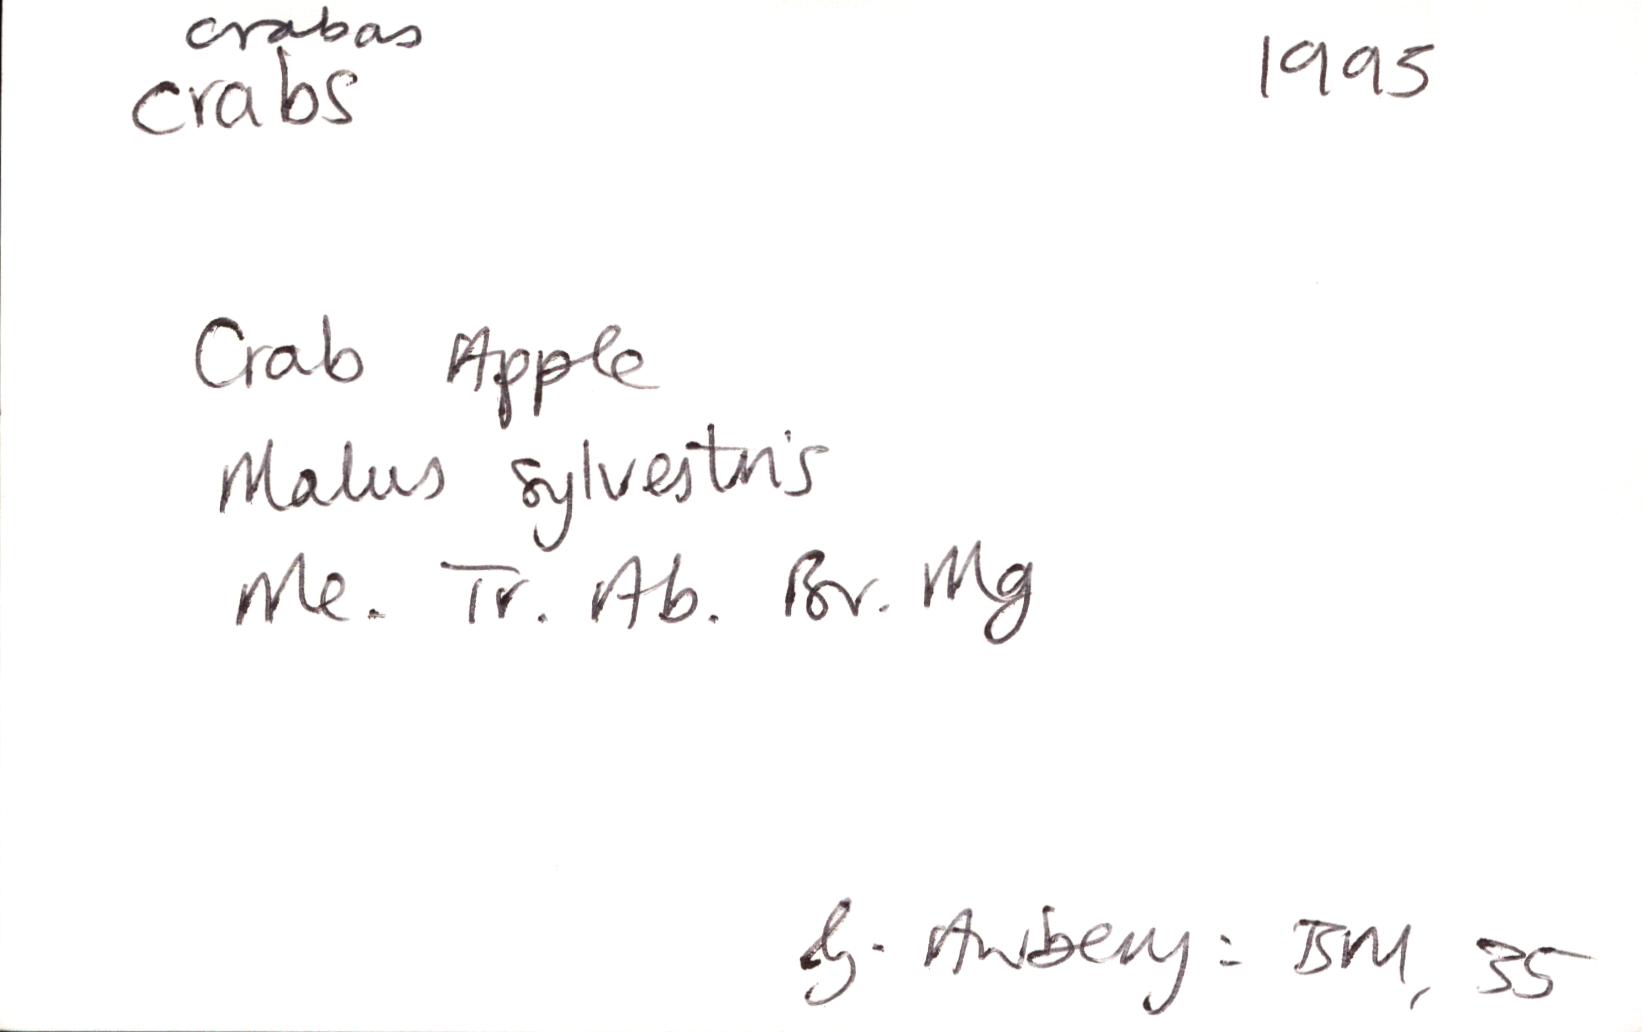 crabas
crabs 1995
Crab Apple
Malus sylvestris
Me. Tr. Ab. Br. Mg
Awbery: BM, 35